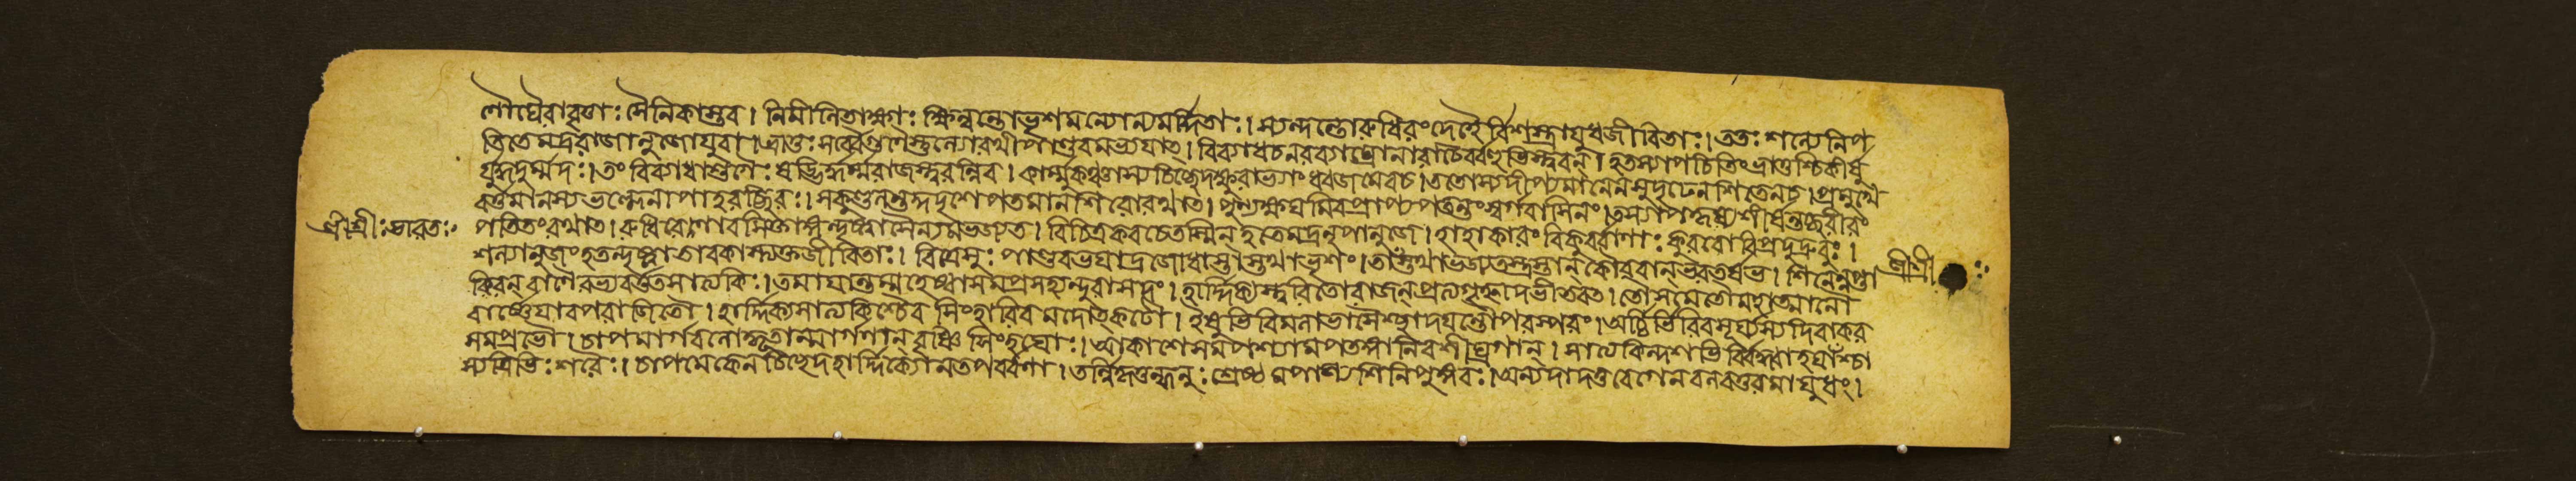 শোঘৈরাবৃণাঃ সৈনিকাস্তব। নির্মানিত্রাঙ্গগাঃ ক্ষিন্বন্তোভৃশমন্যোন্যমর্দ্দিতাঃ। স্যন্দন্তোরুধিরং দেহৈর্বিশস্ত্রায়ুধজীবিতাঃ। ততঃ শল্যেনিপ
তিতেমদ্ররাজানুজোযুবা। ভ্রাতুঃ সর্ব্বৈর্গুণৈস্তুল্যোরথীপাণ্ডবমভ্যযাৎ। বিব্যাধচনরব্যাঘ্রোনারাচৈর্বহুভিস্ত্বরন্। হতস্যাপচিতিংভ্রাতুশ্চিকীর্ষু
র্যুদ্ধদুর্ম্মদঃ। তং বিব্যাধাশুগৈঃ ষড্ভির্দ্ধর্ম্মরাজস্ত্বরন্নিব। কার্ম্মুকঞ্চাস্যচিচ্ছেদক্ষুরাভ্যাং ধ্বজমেবচ। ততোস্যদীপ্যমানেনসুদৃঢেনশিতেনচ। প্রমুখে
বর্ত্তমানস্যভল্লেনাপাহরচ্ছিরঃ। সকুণ্ডলন্তদ্দদৃশেপতমানংশিরোরথাৎ। পুণ্যক্ষয়মিবপ্রাপ্যপতন্তংস্বর্গবাসিনং। তস্যাপকৃষ্টশীর্ষন্তচ্ছরীরং
শ্রীশ্রীঃ ভারতঃ পতিতংরথাৎ। রুধিরেণাবসিক্তাঙ্গন্দৃষ্ট্বাসৈন্যমভজ্যত। বিচিত্রকবচেতস্মিন্ হতেমদ্রনৃপানুজে। হাহাকারং বিকুর্ব্বাণাঃ কুরবোবিপ্রদুদ্রুবুঃ।
শল্যানুজংহতন্দৃষ্ট্বাতাবকাস্ত্যক্তজীবিতাঃ। বিত্রেসুঃ পাণ্ডবভয়াদ্রজোধ্বস্তাস্তথাভৃশং। তাংস্তথাভজ্যতস্ত্রস্তান্ কৌরবান্ভরতর্ষভ। শিনের্নপ্তা শ্রীশ্রী
কিরন্ বাণৈরভ্যবর্ত্ততসাত্যকিঃ। তমায়ান্তম্মহেষ্বাসমপ্রসহ্যন্দুরাসদং। হার্দ্দিক্যস্ত্বরিতোরাজন্প্রত্যগৃহ্ণাদভীতবৎ। তৌসমেতৌমহাত্মানৌ
বার্ষ্ণেয়াবপরাজিতৌ। হার্দ্দিক্যসাত্যকিশ্চৈব সিংহাবিব মদোৎকটৌ। ইষুভির্বিমলাভাসৈশ্ছাদয়ন্তৌপরস্পরং। অর্চ্চির্ভিরিবসূর্যস্যদিবাকর
সমপ্রভৌ। চাপমার্গবলোদ্ধূতান্মার্গণান্ বৃষ্ণিসিংহয়োঃ। আকাশেসমপশ্যামপতঙ্গানিবশীঘ্রগান্। সাত্যকিন্দশভির্বিদ্ধ্বাহয়াংশ্চা
স্যত্রিভিঃ শরৈঃ। চাপমেকেনচিচ্ছেদহার্দ্দিক্যোনতপর্ব্বণা। তন্নিকৃত্তন্ধনুঃ শ্রেষ্ঠমপাস্যশিনিপুঙ্গবঃ। অন্যদাদত্তবেগেনবলবত্তরমায়ুধং।